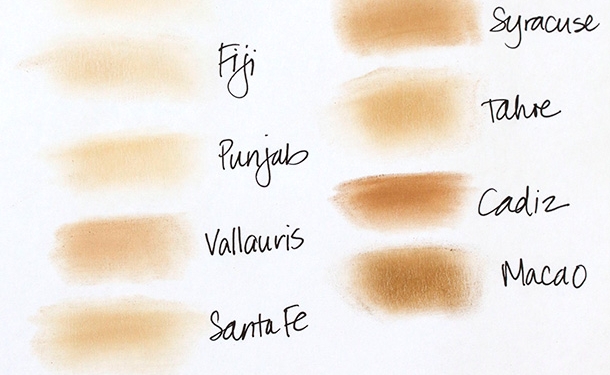 Fiji
Punjab
Vallauris
Santa Fe
Syracuse
Tahoe
Cadiz
Macao